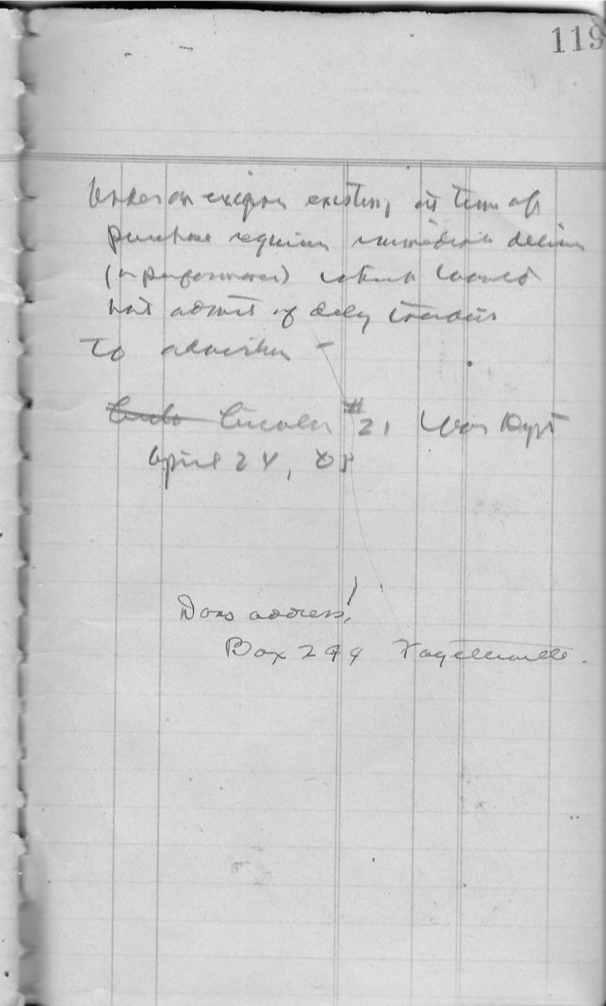 119
Under an exigency existing at time of
purchase requiring immediate delivery
(or performance) which would
not admit of delay incident
to advertising –
Circular #21 War Dept
April 24, 08
Dans address!
Box 244 Fayetteville.